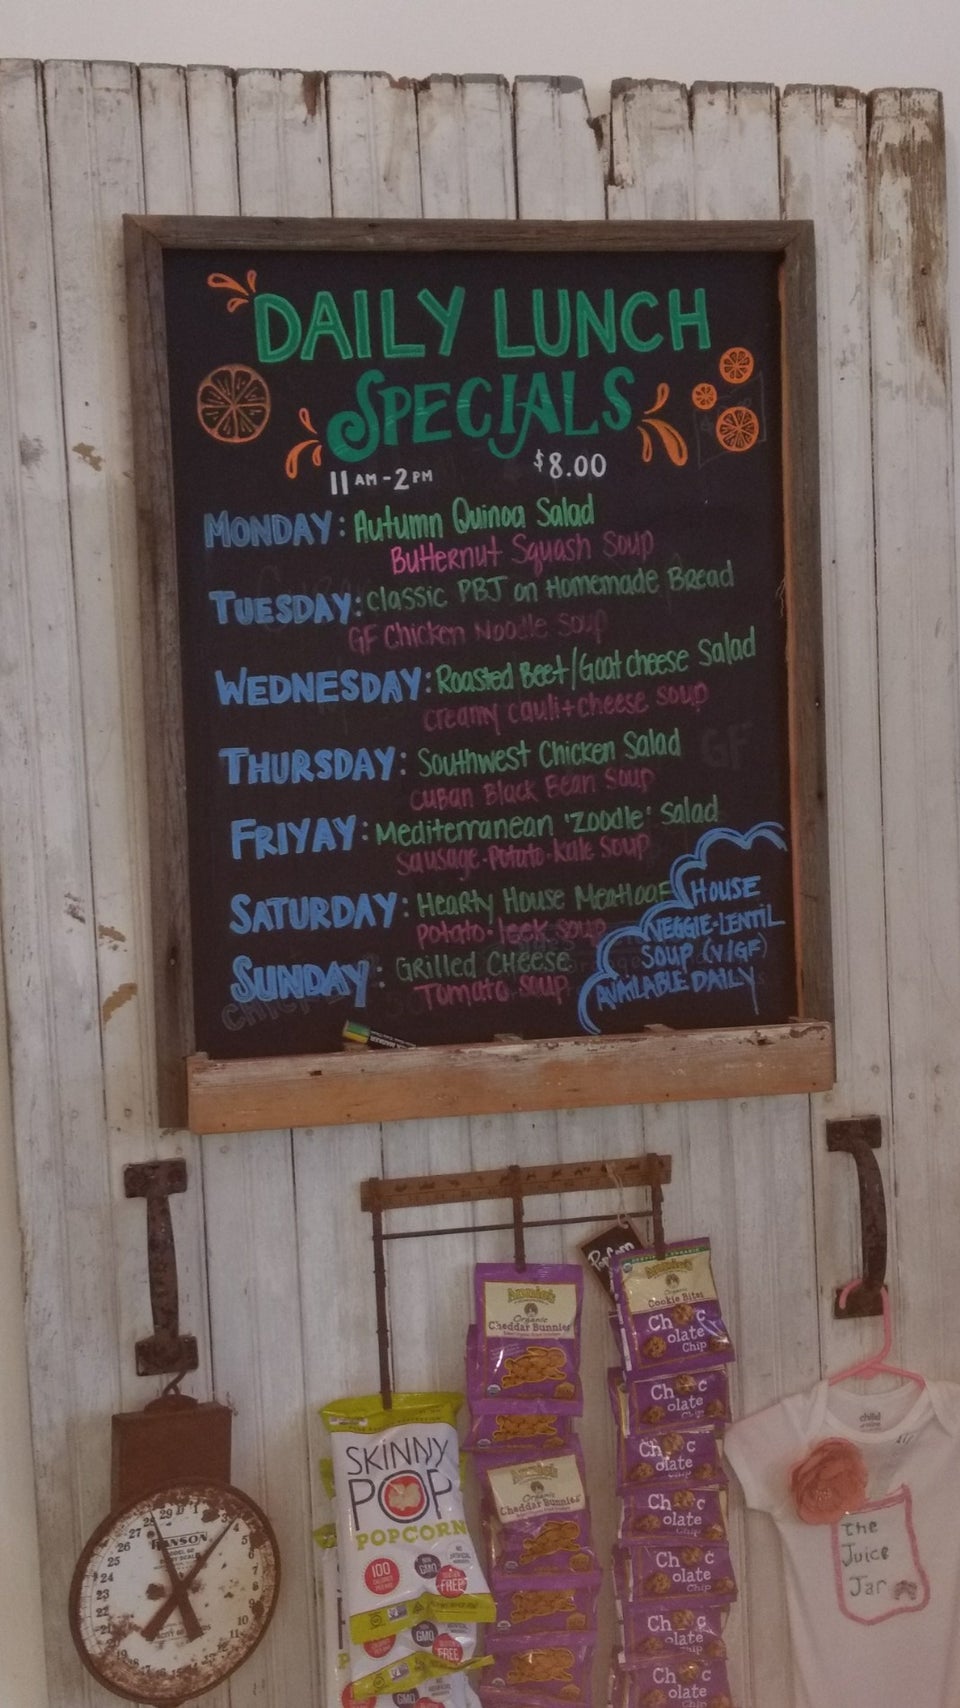 DAILY LUNCH
SPECIALS
11AM-2PM $8.00
MONDAY: Autumn Quinoa Salad
Butternut Squash Soup
TUESDAY: Classic PBJ on Homemade Bread
GF Chicken Noodle Soup
WEDNESDAY: Roasted Beet/Goat cheese Salad
creamy cauli+cheese soup
THURSDAY: Southwest Chicken Salad
Cuban Black Bean Soup
FRIYAY: Mediterranean 'Zoodle' Salad
Sausage-Potato-Kale Soup
SATURDAY: Hearty House Meatloaf
Potato-leek soup
SUNDAY: GRilled CHeese
Tomato soup
HOUSE
VEGGIE-LENTIL
SOUP (V/GF)
AVAILABLE DAILY
GF
PopCorn
Annie's
Organic
Cheddar Bunnies
Annie's
Organic
Cheddar Bunnies
Annie's
Organic
Cookie Bites
Ch c
olate
Chip
Ch c
olate
Chip
Ch c
olate
Ch c
olate
Chip
Ch c
olate
Chip
Ch c
olate
Chip
Ch c
olate
Chip
SKINNY
POP
POPCORN
100
NON
GMO
FREE
GMO
FREE
GMO
HANSON
child
The
Juice
Jar